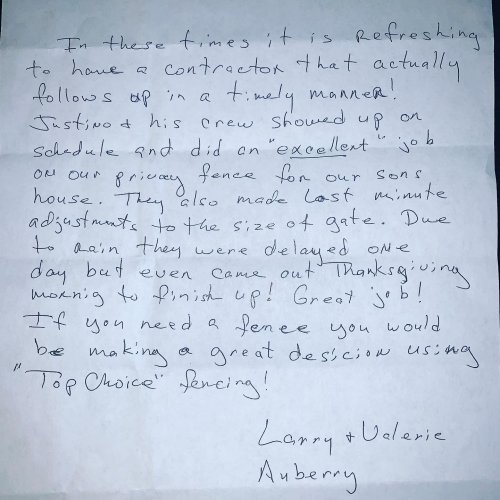 In these times it is refreshing
to have a contractor that actually
follows up in a timely manner!
Justino & his crew showed up on
schedule and did an "excellent" job
on our privacy fence for our sons
house. They also made last minute
adjustments to the size of gate. Due
to rain they were delayed one
day but even came out Thanksgiving
mornig to finish up! Great job!
If you need a fence you would
be making a great desicion using
"Top Choice" fencing!
Larry & Valerie
Auberry